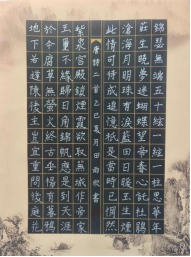 錦瑟無端五十絃一絃一柱思華年
莊生曉夢迷蝴蝶望帝春心託杜鵑
滄海月明珠有淚藍田日暖玉生煙
此情可待成追憶只是當時已惘然
唐詩二首乙巳夏月田雨書
紫泉宮殿鎖煙霞欲取蕪城作帝家
玉璽不緣歸日角錦帆應是到天涯
於今腐草無螢火終古垂楊有暮鴉
地下若逢陳後主豈宜重問後庭花